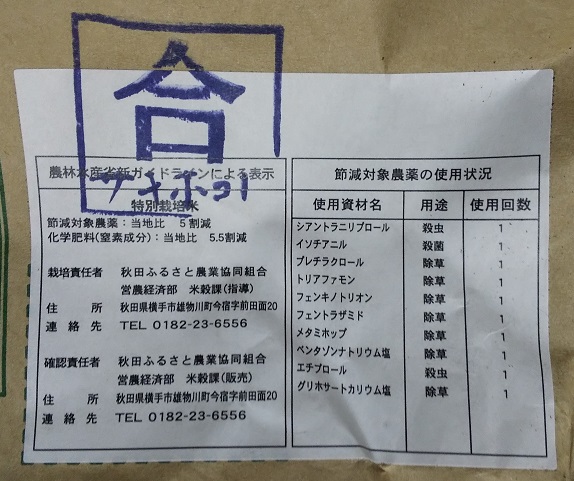 合
サキホコレ
農林水産省新ガイドラインによる表示
特別栽培米
節減対象農薬:当地比 5割減
化学肥料(窒素成分):当地比 5.5割減
栽培責任者 秋田ふるさと農業協同組合
営農経済部 米穀課(指導)
住所 秋田県横手市雄物川町今宿字前田面20
連絡先 TEL 0182-23-6556
確認責任者 秋田ふるさと農業協同組合
営農経済部 米穀課(販売)
住所 秋田県横手市雄物川町今宿字前田面20
連絡先 TEL 0182-23-6556
節減対象農薬の使用状況
使用資材名 用途 使用回数
シアントラニリプロール 殺虫 1
イソチアニル 殺菌 1
プレチラクロール 除草 1
トリアファモン 除草 1
フェンキノトリオン 除草 1
フェントラザミド 除草 1
メタミホップ 除草 1
ベンタゾンナトリウム塩 除草 1
エチプロール 殺虫 1
グリホサートカリウム塩 除草 1